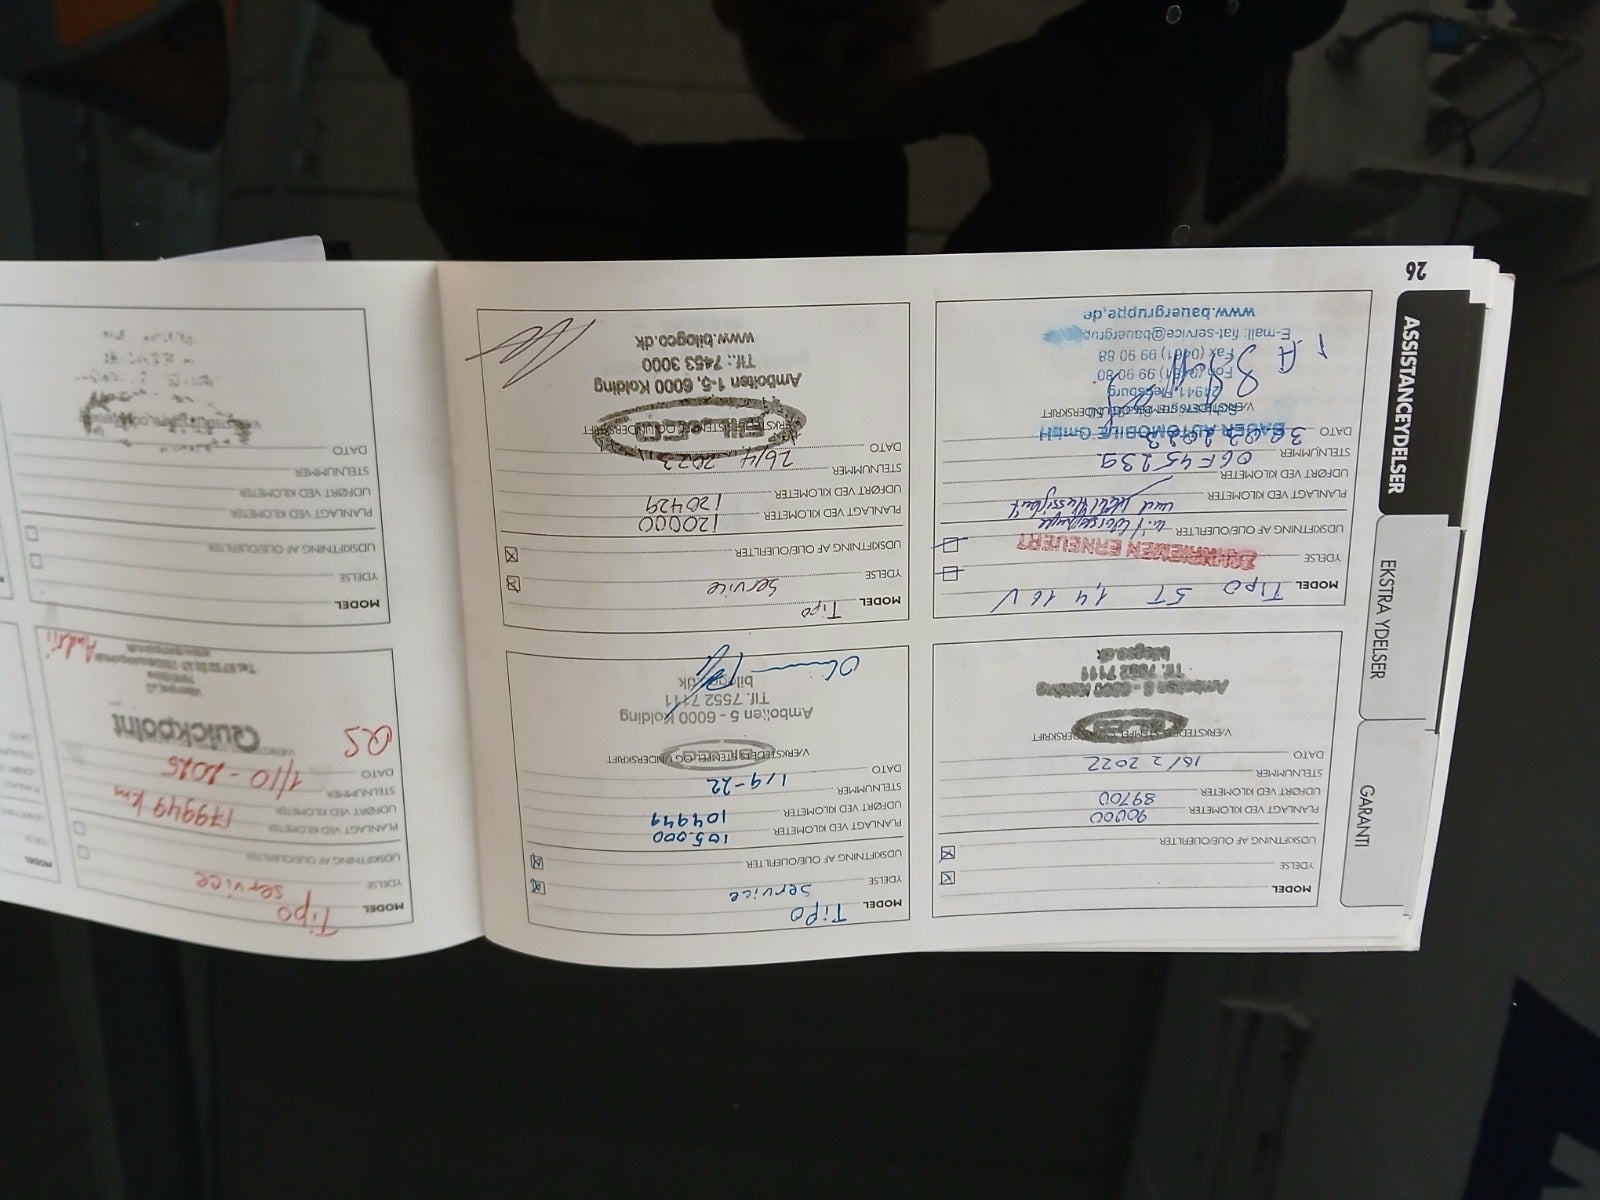 26
ASSISTANCEYDELSER
EKSTRA YDELSER
GARANTI
MODEL Tipo ST 1,4 16V
YDELSE
ZAHNRIEMEN ERNEUERT
UDSKIFTNING AF OLIE/OLIEFILTER
PLANLAGT VED KILOMETER
UDFØRT VED KILOMETER
STELNUMMER 06F45239
DATO
BAUER AUTOMOBILE GmbH
VÆRKSTEDETS STEMPEL OG UNDERSKRIFT
24941 Flensburg
Fon (0461) 99 90 80
Fax (0461) 99 90 88
E-mail: fiat-service@bauergrup
www.bauergruppe.de
MODEL Tipo
YDELSE Service
UDSKIFTNING AF OLIE/OLIEFILTER
PLANLAGT VED KILOMETER 120000
UDFØRT VED KILOMETER 120429
STELNUMMER
DATO 26/4 2023
VÆRKSTEDETS STEMPEL OG UNDERSKRIFT
BIL&CO
Ambolten 1-5, 6000 Kolding
Tlf.: 7453 3000
www.bilogco.dk
MODEL
YDELSE
UDSKIFTNING AF OLIE/OLIEFILTER
PLANLAGT VED KILOMETER
UDFØRT VED KILOMETER
STELNUMMER
DATO
MODEL
YDELSE
UDSKIFTNING AF OLIE/OLIEFILTER
PLANLAGT VED KILOMETER 90000
UDFØRT VED KILOMETER 89700
STELNUMMER
DATO 16/2 2022
VÆRKSTEDETS STEMPEL OG UNDERSKRIFT
Ambolten 5 - 6000 Kolding
Tlf. 7552 7111
bilogco.dk
MODEL Tipo
YDELSE Service
UDSKIFTNING AF OLIE/OLIEFILTER
PLANLAGT VED KILOMETER 105.000
UDFØRT VED KILOMETER 104949
STELNUMMER
DATO 1/9-22
VÆRKSTEDETS STEMPEL OG UNDERSKRIFT
BIL&CO
Ambolten 5 - 6000 Kolding
Tlf. 7552 7111
bilogco.dk
MODEL Tipo
YDELSE service
UDSKIFTNING AF OLIE/OLIEFILTER
PLANLAGT VED KILOMETER
UDFØRT VED KILOMETER 179949 km
STELNUMMER
DATO 1/10-2025
Quickpoint
QS
Andrii
MODEL